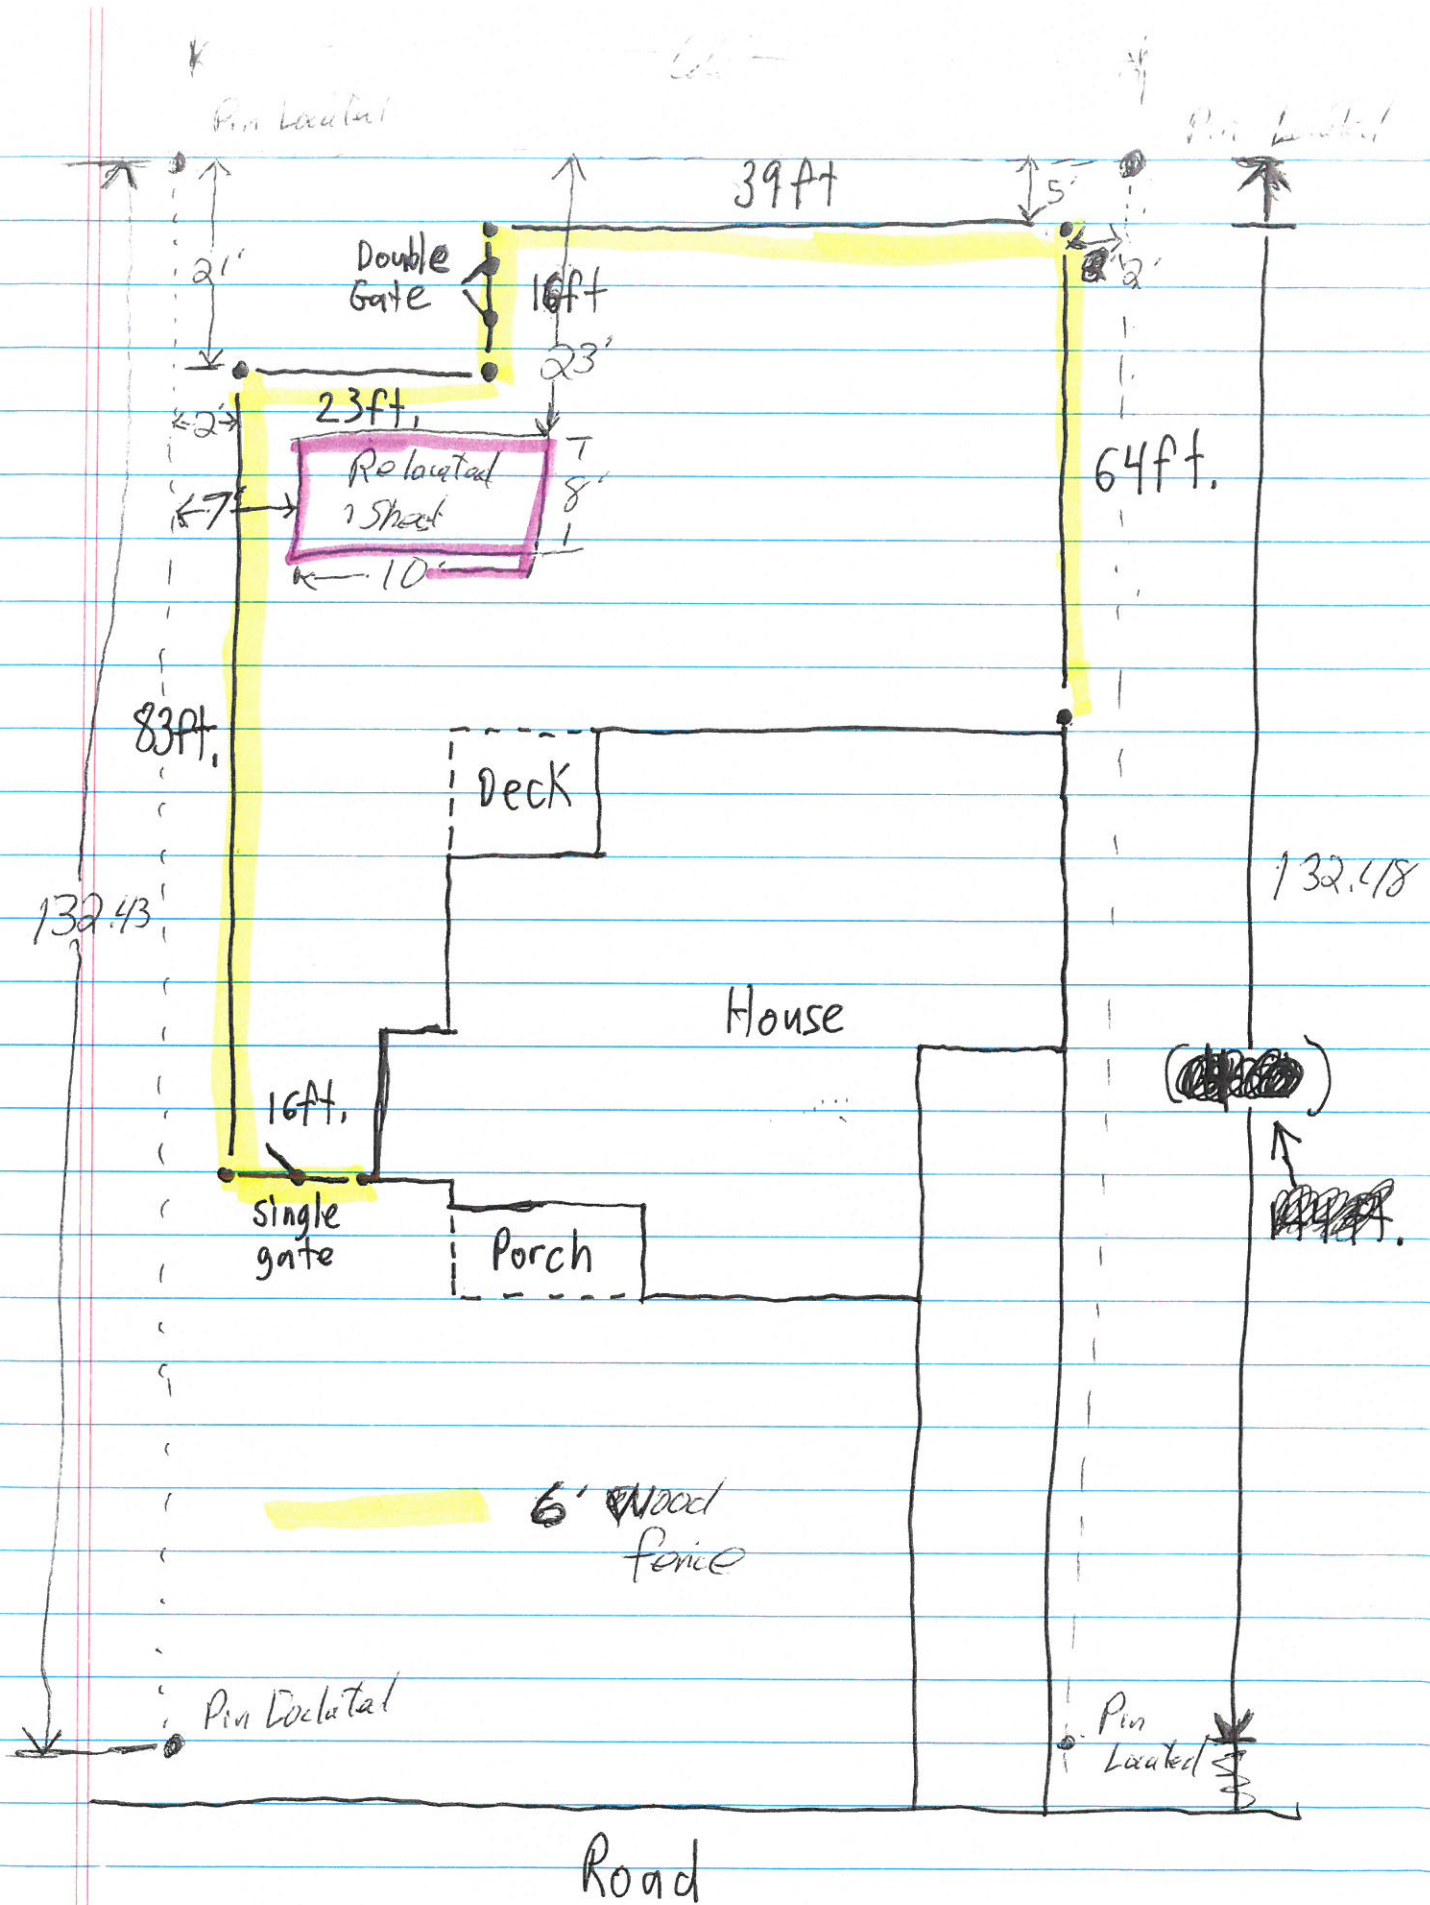 Pin Located
Pin Located
39ft
5'
21'
Double
Gate
16ft
2'
23'
2'
23ft.
Relocated
Shed
8'
7'
10'
64ft.
83ft.
Deck
132.43
132.48
House
16ft.
single
gate
Porch
6' Wood
fence
Pin Located
Pin
Located
Road